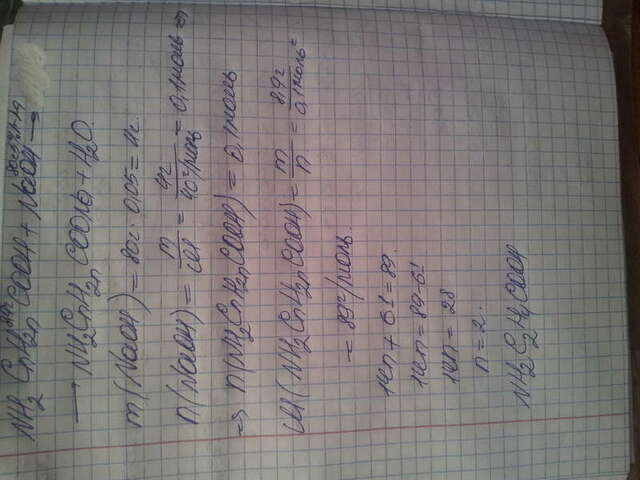 NH₂CnH₂nCOOH + NaOH →
→ NH₂CnH₂nCOONa + H₂O.
m(NaOH) = 80г · 0,05 = 4г.
n(NaOH) = m/M = 4г/40г/моль = 0,1моль ⇒
⇒ n(NH₂CnH₂nCOOH) = 0,1моль
M(NH₂CnH₂nCOOH) = m/n = 8,9г/0,1моль =
= 89г/моль.
14n + 61 = 89.
14n = 89-61
14n = 28
n = 2.
NH₂C₂H₄COOH